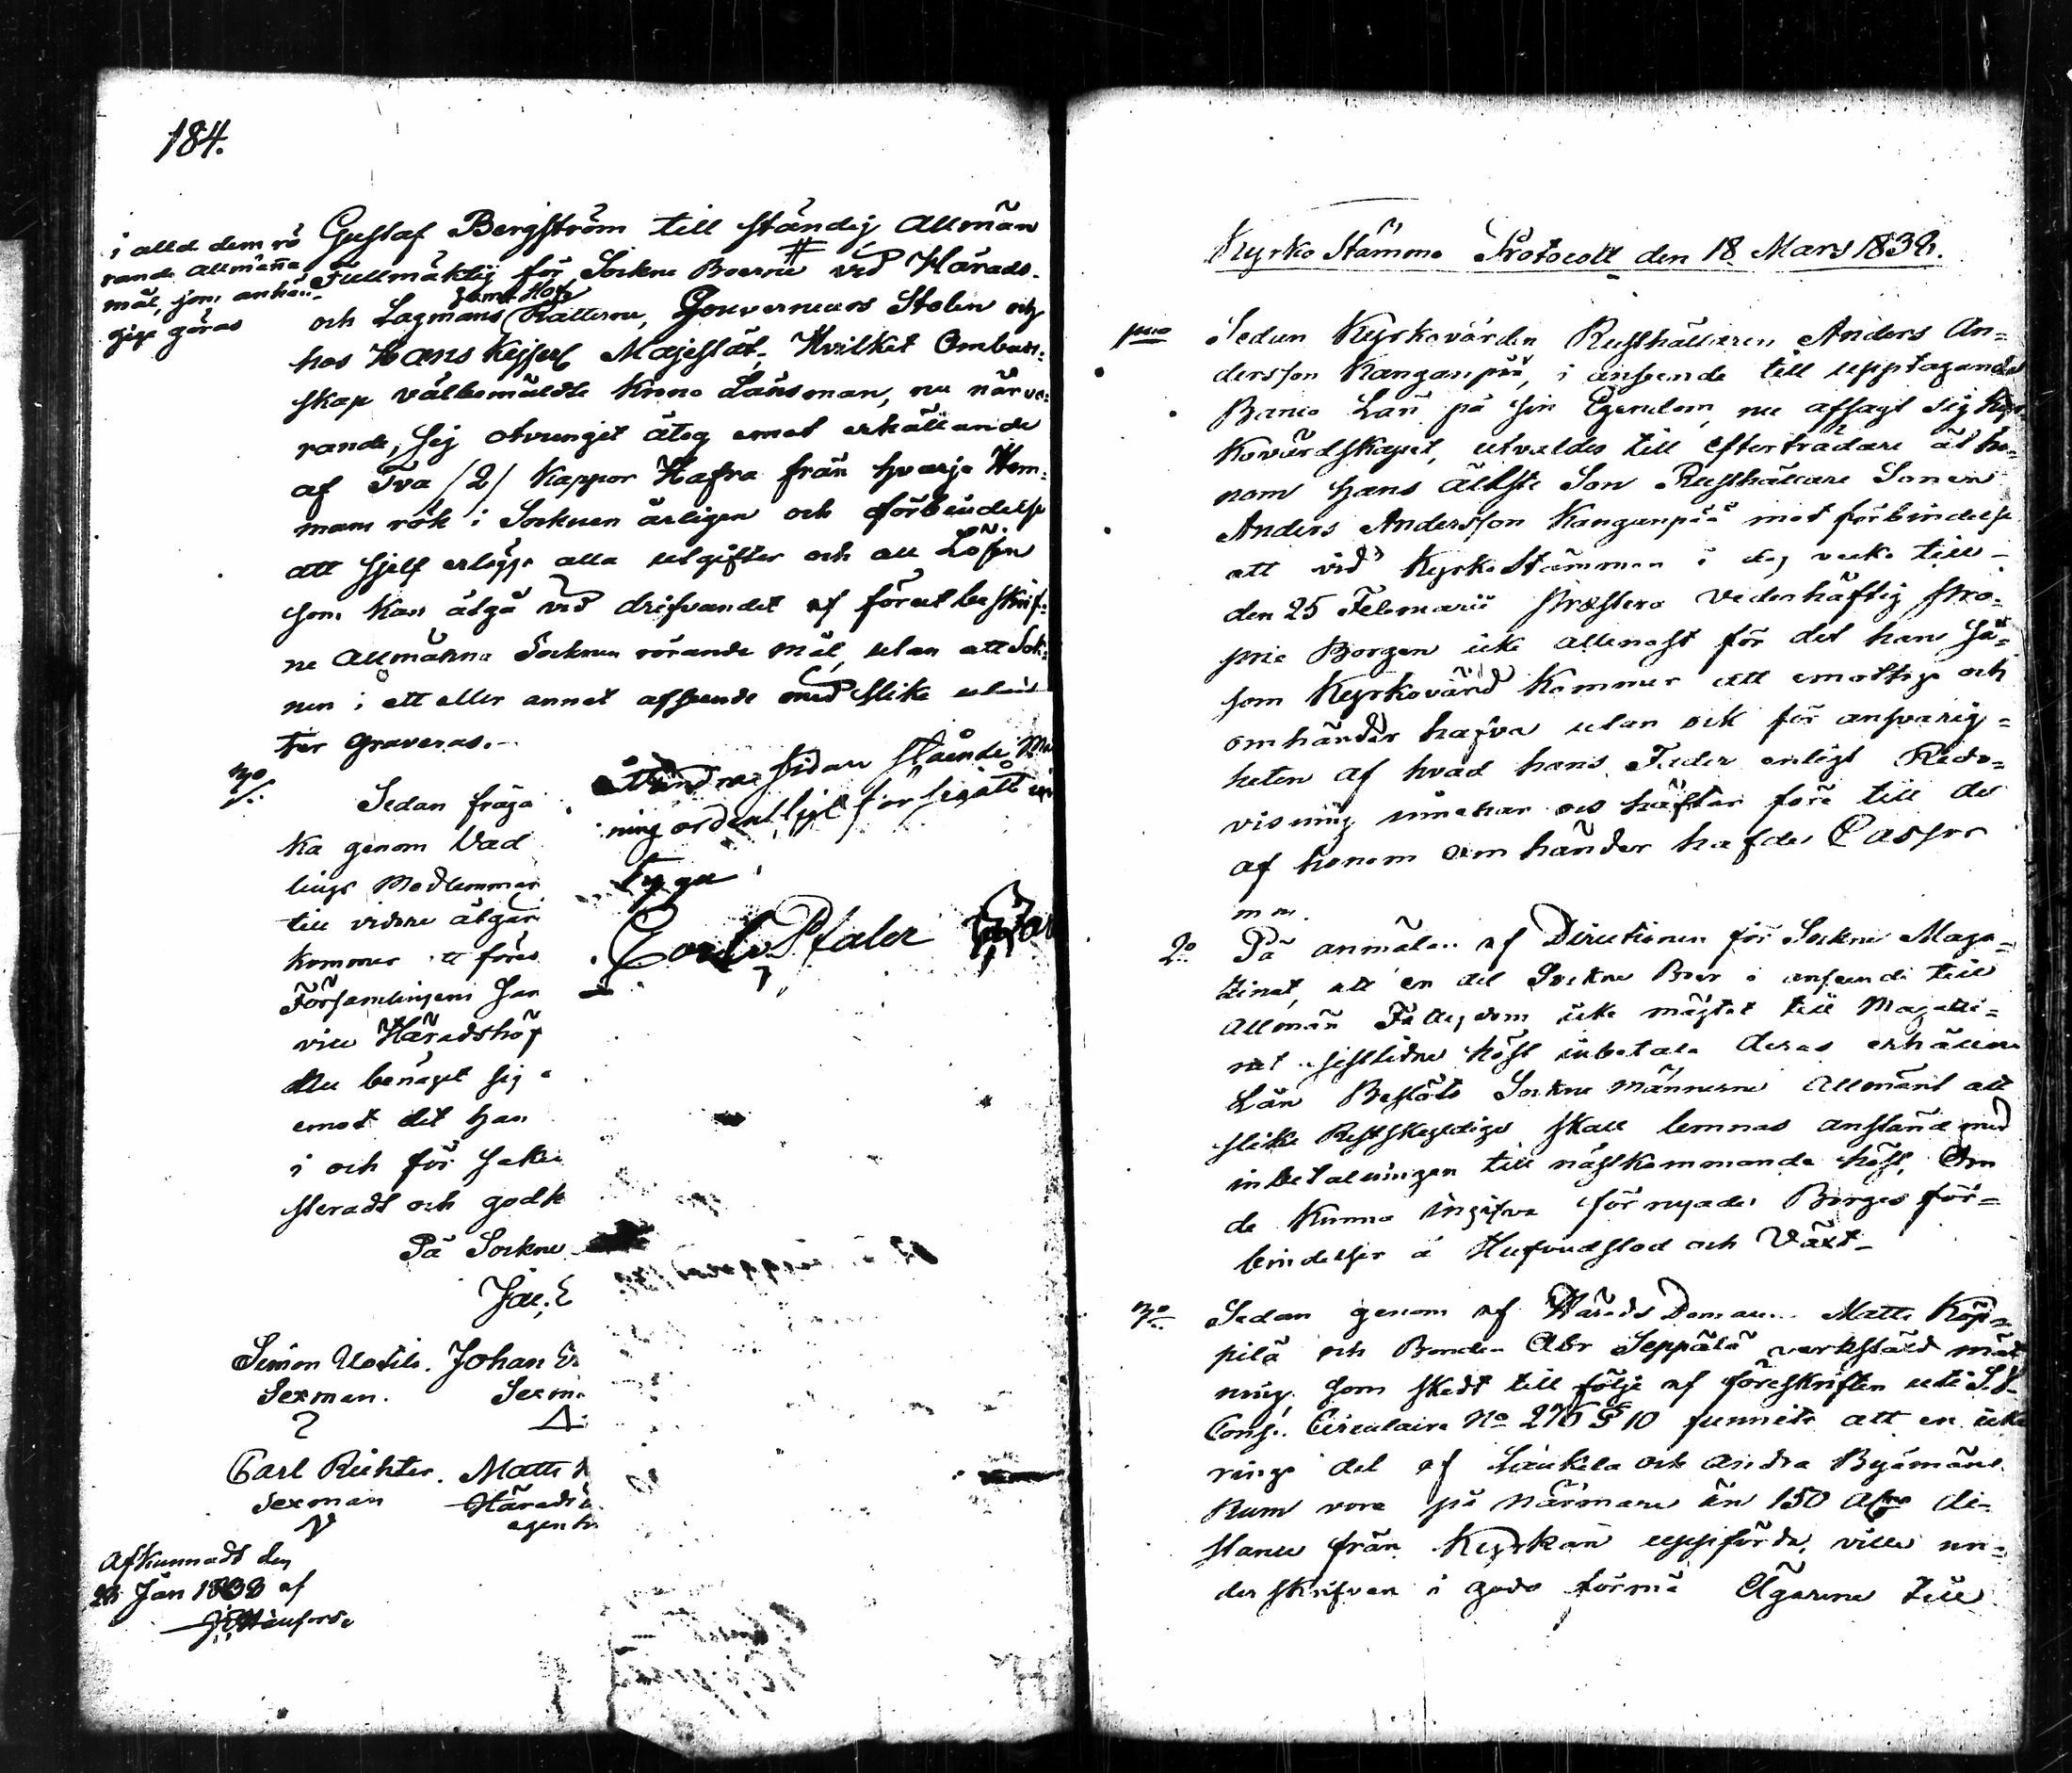 184.
i alld dem rö
rande Allmänna
mål, som anhän
giga göras
Gustaf Bergström till ständig Allmän
Fullmäktig för Sockne Boerne # vid Härads-
och Lagmans samt Hof Rätterne, Gouverneurs Stolen och
hos Hans Kejserl Majestät, Hvilket Ombud-
skap välbemäldte Krono Länsman, nu närva-
rande, sig otvunget åtog emot erhållande
af Två /2/ Kappor Hafra från hvarje Hem-
mans rök i Socknen årligen och förbindelse
att sjelf erlägga alla utgifter och all Lösen
som kan åtgå vid drifvandet af förutbeskrif-
ne Allmänna Socknen rörande mål, utan att Sock-
nen i ett eller annat afseende med slike utgif-
ter graveras.
3o/.
Sedan fråga
ka genom Vad
lings Medlemmar
till vidare åtgär
kommer att föres
Församlingens San
vice Häradshöf
du benäget sig
emot det han
i och för saken
steradt och godk
På Sockne
Jac. E
Simon Uotila. Johan Er
Sexman. Sexma
Carl Richter. Matts
Sexman Härads
egen h
Afkunnadt den
28 Jan 1838 af
å andra sidan stående Mä
ning ordentligt försigått in
tyga
Carl v Pfaler
Kyrko Stämmo Protocoll den 18 Mars 1838.
1mo Sedan Kyrkovärden Rusthållaren Anders An-
dersson Kanganpää, i anseende till upptagande
Banco Lån på sin Egendom, nu afsagt sig Kyr-
kovärdskapet, utvaldes till efterträdare åt ho-
nom hans äldste Son Rusthållare Sonen
Anders Andersson Kanganpää mot förbindelse
att vid Kyrko Stämman i dag vecka till
den 25 Februarii præstera vederhäftig pro-
prie Borgen icke allenast för det han så-
som Kyrkovärd kommer att emottaga och
omhänder hafva utan ock för ansvarig-
heten af hvad hans Fader enligt Redo-
visning innehar och häftar före till de
af honom omhänder hafde Cassor
m m.
2o På anmälan af Directionen för Sockne Maga-
zinet, att en del Sockne Boer i anseende till
Allmän Fattigdom icke mägtat till Magazi-
net sistlidne höst inbetala deras erhållne
Lån Beslöts Sockne Männerne Allmänt att
slike Restskyldige skall lemnas anstånd med
inbetalningen till nästkommande höst, Om
de kunna ingifva förnyade Borges för-
bindelser å Hufvudstol och Växt
3o Sedan genom af Härads Domaren Matts Köp-
pilä och Bonden Abr Seppälä verkstäld mät-
ning, som skedt till följe af föreskriften uti S.S.
Cons. Circulaire No 276 § 10 funnits att en icke
ringa del af Laukela och andra Byamäns
Rum vore på närmare än 150 Alnrs di-
stance från Kyrkan uppförde, ville un-
derskrifven i godo förmå Ägarena till